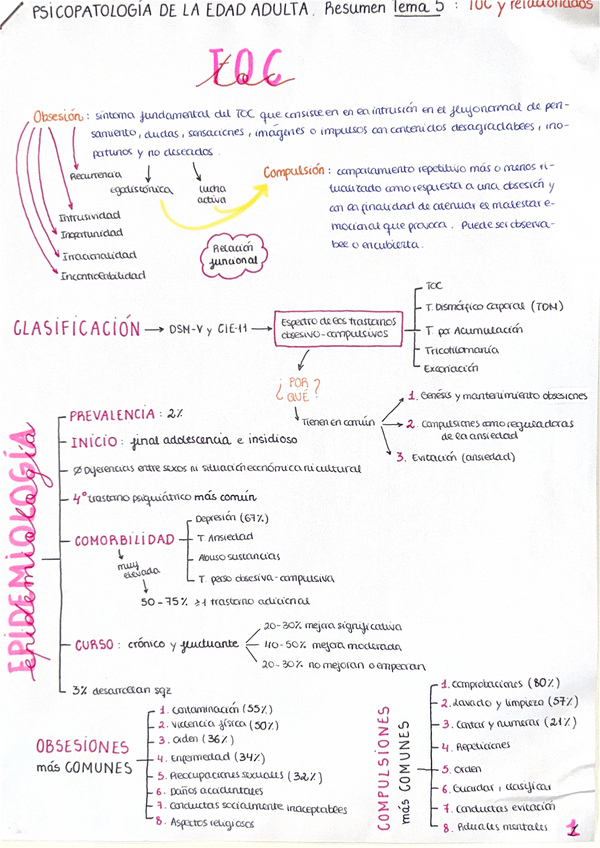 PSICOPATOLOGÍA DE LA EDAD ADULTA. Resumen Tema 5 : TOC y relacionados
TOC
toc
Obsesión : síntoma fundamental del TOC que consiste en en la intrusión en el flujo normal de pen-
samiento, dudas, sensaciones, imágenes o impulsos con contenidos desagradables, ino-
portunos y no deseados.
Recurrencia
egodistónica
lucha
activa
Intrusividad
Inoportunidad
Irracionalidad
Incontrolabilidad
Compulsión : comportamiento repetitivo más o menos ri-
tualizado como respuesta a una obsesión y
con la finalidad de atenuar el malestar e-
mocional que provoca. Puede ser observa-
ble o encubierta.
Relación
funcional
CLASIFICACIÓN → DSM-V y CIE-11 → Espectro de los trastornos
obsesivo-compulsivos
TOC
T. Dismórfico corporal (TDM)
T por Acumulación
Tricotilomanía
Excoriación
¿POR
QUÉ?
Tienen en común
1. Génesis y mantenimiento obsesiones
2. Compulsiones como reguladoras
de la ansiedad
3. Evitación (ansiedad)
EPIDEMIOLOGÍA
epidemiología
PREVALENCIA : 2%
INICIO : final adolescencia e insidioso
Ø Diferencias entre sexos ni situación económica ni cultural
4º trastorno psiquiátrico más común
COMORBILIDAD
muy
elevada
Depresión (67%)
T Ansiedad
Abuso sustancias
T. perso obsesiva-compulsiva
50-75% ≥1 trastorno adicional
CURSO : crónico y fluctuante
20-30% mejora significativa
40-50% mejora moderada
20-30% no mejoran o empeoran
3% desarrollan sqz
OBSESIONES
más COMUNES
1. Contaminación (55%)
2. Violencia física (50%)
3. Orden (36%)
4. Enfermedad (34%)
5. Preocupaciones sexuales (32%)
6. Daños accidentales
7. Conductas socialmente inaceptables
8. Aspectos religiosos
COMPULSIONES
más COMUNES
1. Comprobaciones (80%)
2. Lavado y limpieza (57%)
3. Contar y numerar (21%)
4. Repeticiones
5. Orden
6. Guardar, clasificar
7. Conductas evitación
8. Rituales mentales
1